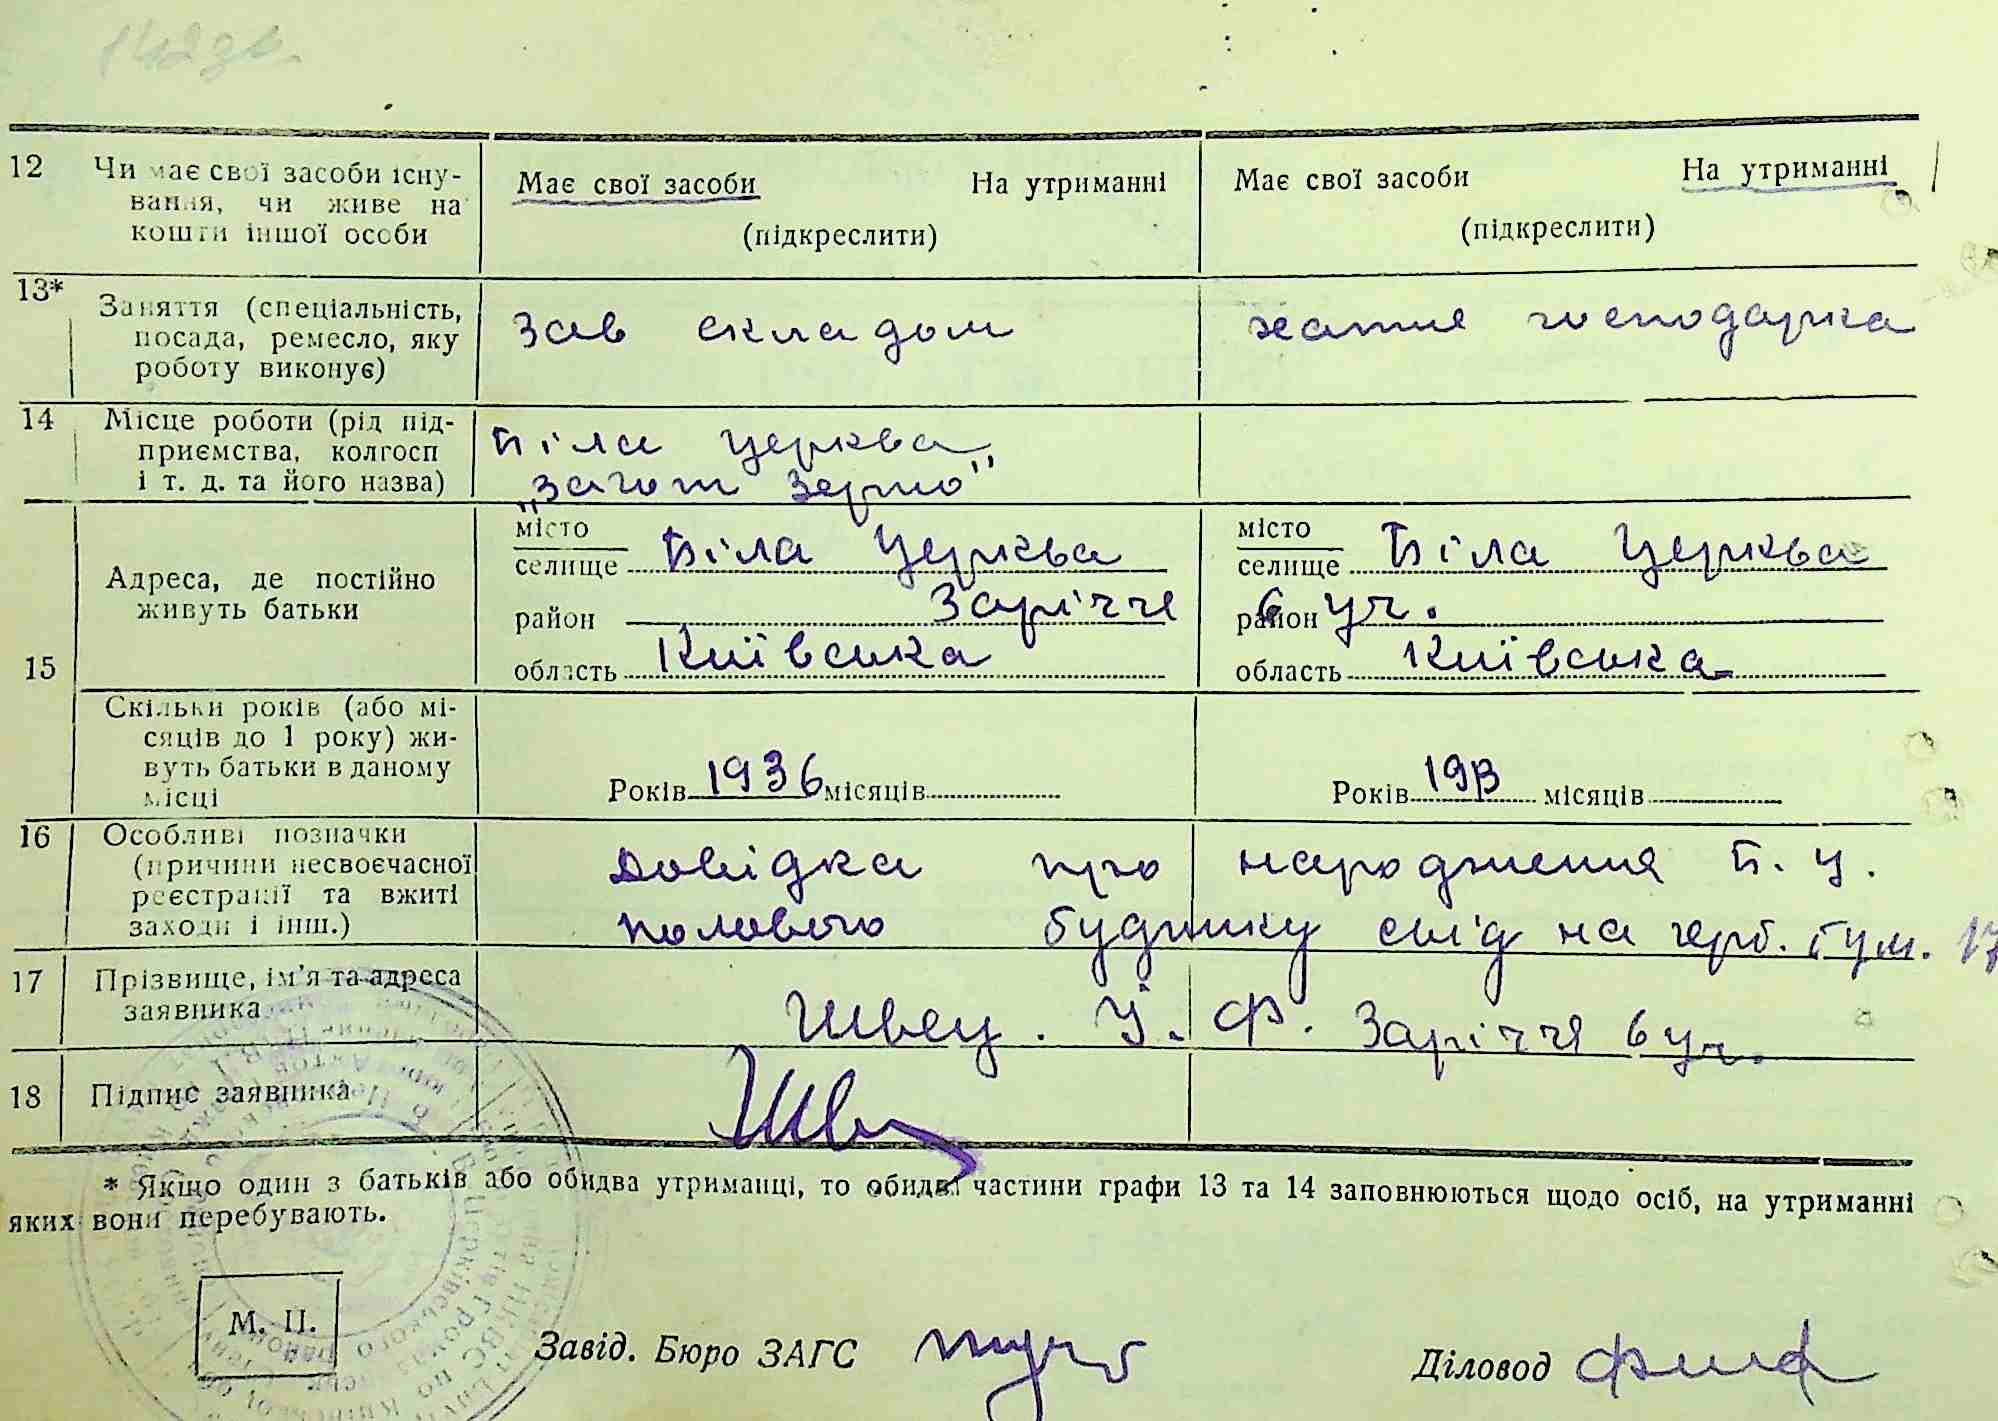 142 зв.
12 Чи має свої засоби існу-
вання, чи живе на
кошти іншої особи
Має свої засоби На утриманні
(підкреслити)
Має свої засоби На утриманні
(підкреслити)
13* Заняття (спеціальність,
посада, ремесло, яку
роботу виконує)
Зав складом
хатня господарка
14 Місце роботи (рід під-
приємства, колгосп
і т. д. та його назва)
Біла Церква
„Загот Зерно"
15
Адреса, де постійно
живуть батьки
місто
селище Біла Церква
район Заріччя
область Київська
місто
селище Біла Церква
район 6 уч.
область Київська
Скільки років (або мі-
сяців до 1 року) жи-
вуть батьки в даному
місці
Років 1936 місяців
Років місяців
16 Особливі позначки
(причини несвоєчасної
реєстрації та вжиті
заходи і інш.)
Довідка про народження Б. Ц.
полового будинку слід на герб. бум. 17
17 Прізвище, ім'я та адреса
заявника
Швец. Й. Ф. Заріччя 6 уч.
18 Підпис заявника
* Якщо один з батьків або обидва утриманці, то обидві частини графи 13 та 14 заповнюються щодо осіб, на утриманні
яких вони перебувають.
М. П.
Завід. Бюро ЗАГС
Діловод